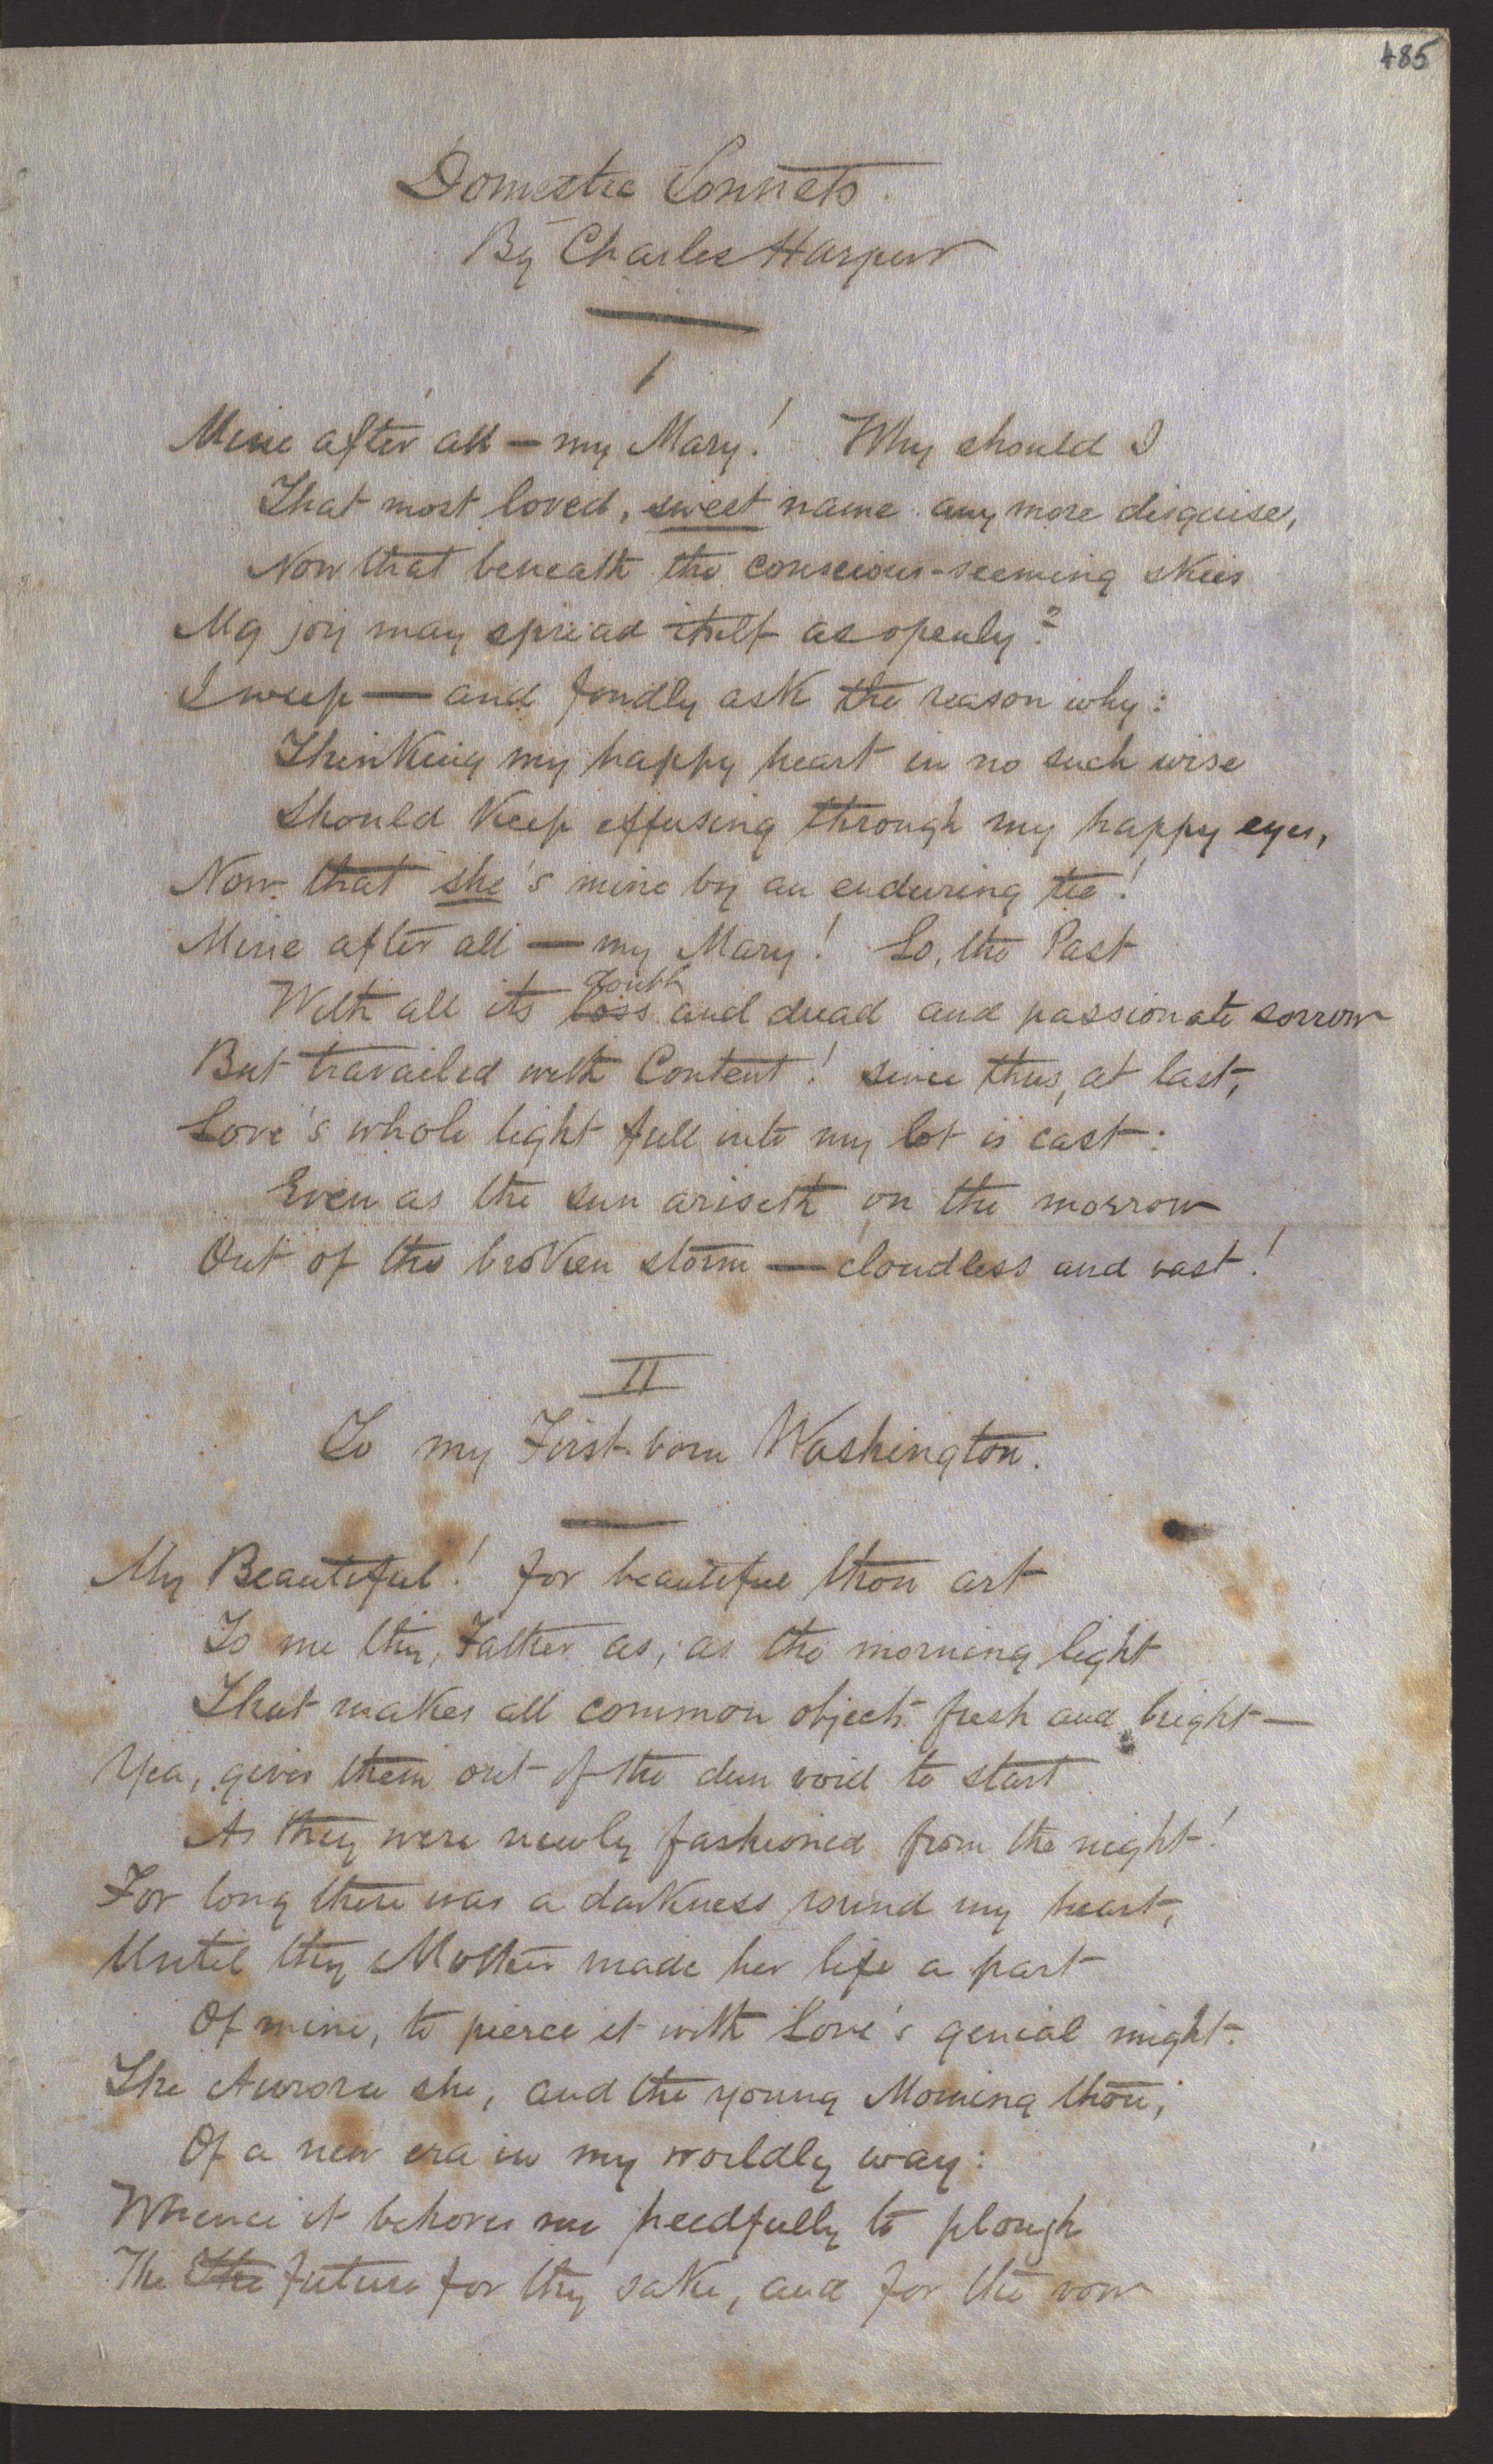 485
Domestic Sonnets.
By Charles Harpur
I
Mine after all — my Mary! Why should I
That most loved, sweet name any more disguise,
Now that beneath the conscious-seeming skies
My joy may spread itself as openly?
I weep — and fondly ask the reason why:
Thinking my happy heart in no such wise
Should keep effusing through my happy eyes,
Now that she's mine by an enduring tie!
Mine after all — my Mary! So, the Past
doubt
With all its loss and dread and passionate sorrow
But travailed with Content! since thus, at last,
Love's whole light full into my lot is cast:
Even as the sun ariseth on the morrow
Out of the broken storm — cloudless and vast!
II
To my First-born Washington.
My Beautiful! for beautiful thou art
To me thy, Father as, as the morning light
That makes all common objects fresh and bright —
Yea, gives them out of the dun void to start
As they were newly fashioned from the night!
For long there was a darkness round my heart,
Until thy Mother made her life a part
Of mine, to pierce it with Love's genial might.
The Aurora she, and the young Morning thou,
Of a new era in my worldly way:
Whence it behoves me heedfully to plough
The The Future for thy sake, and for the vow